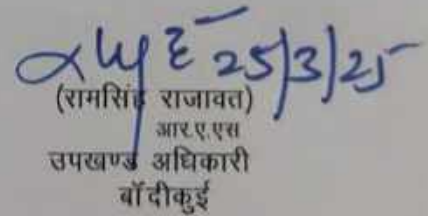 25/3/25
(रामसिंह राजावत)
आर.ए.एस
उपखण्ड अधिकारी
बाँदीकुई